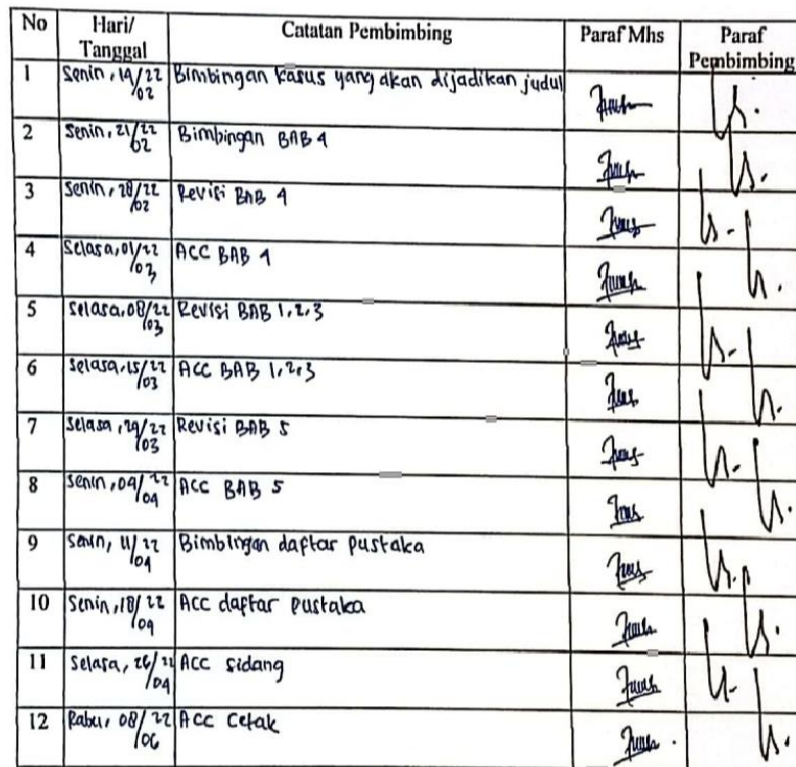 No Hari/ Tanggal Catatan Pembimbing Paraf Mhs Paraf Pembimbing
1 Senin, 14/22 02 Bimbingan kasus yang akan dijadikan judul
2 Senin, 21/22 02 Bimbingan BAB 4
3 Senin, 28/22 02 Revisi BAB 4
4 Selasa, 01/22 03 ACC BAB 4
5 Selasa, 08/22 03 Revisi BAB 1, 2, 3
6 Selasa, 15/22 03 ACC BAB 1, 2, 3
7 Selasa, 29/22 03 Revisi BAB 5
8 Senin, 04/22 04 ACC BAB 5
9 Senin, 11/22 04 Bimbingan daftar pustaka
10 Senin, 18/22 04 Acc daftar pustaka
11 Selasa, 26/22 04 Acc sidang
12 Rabu, 08/22 06 Acc Cetak